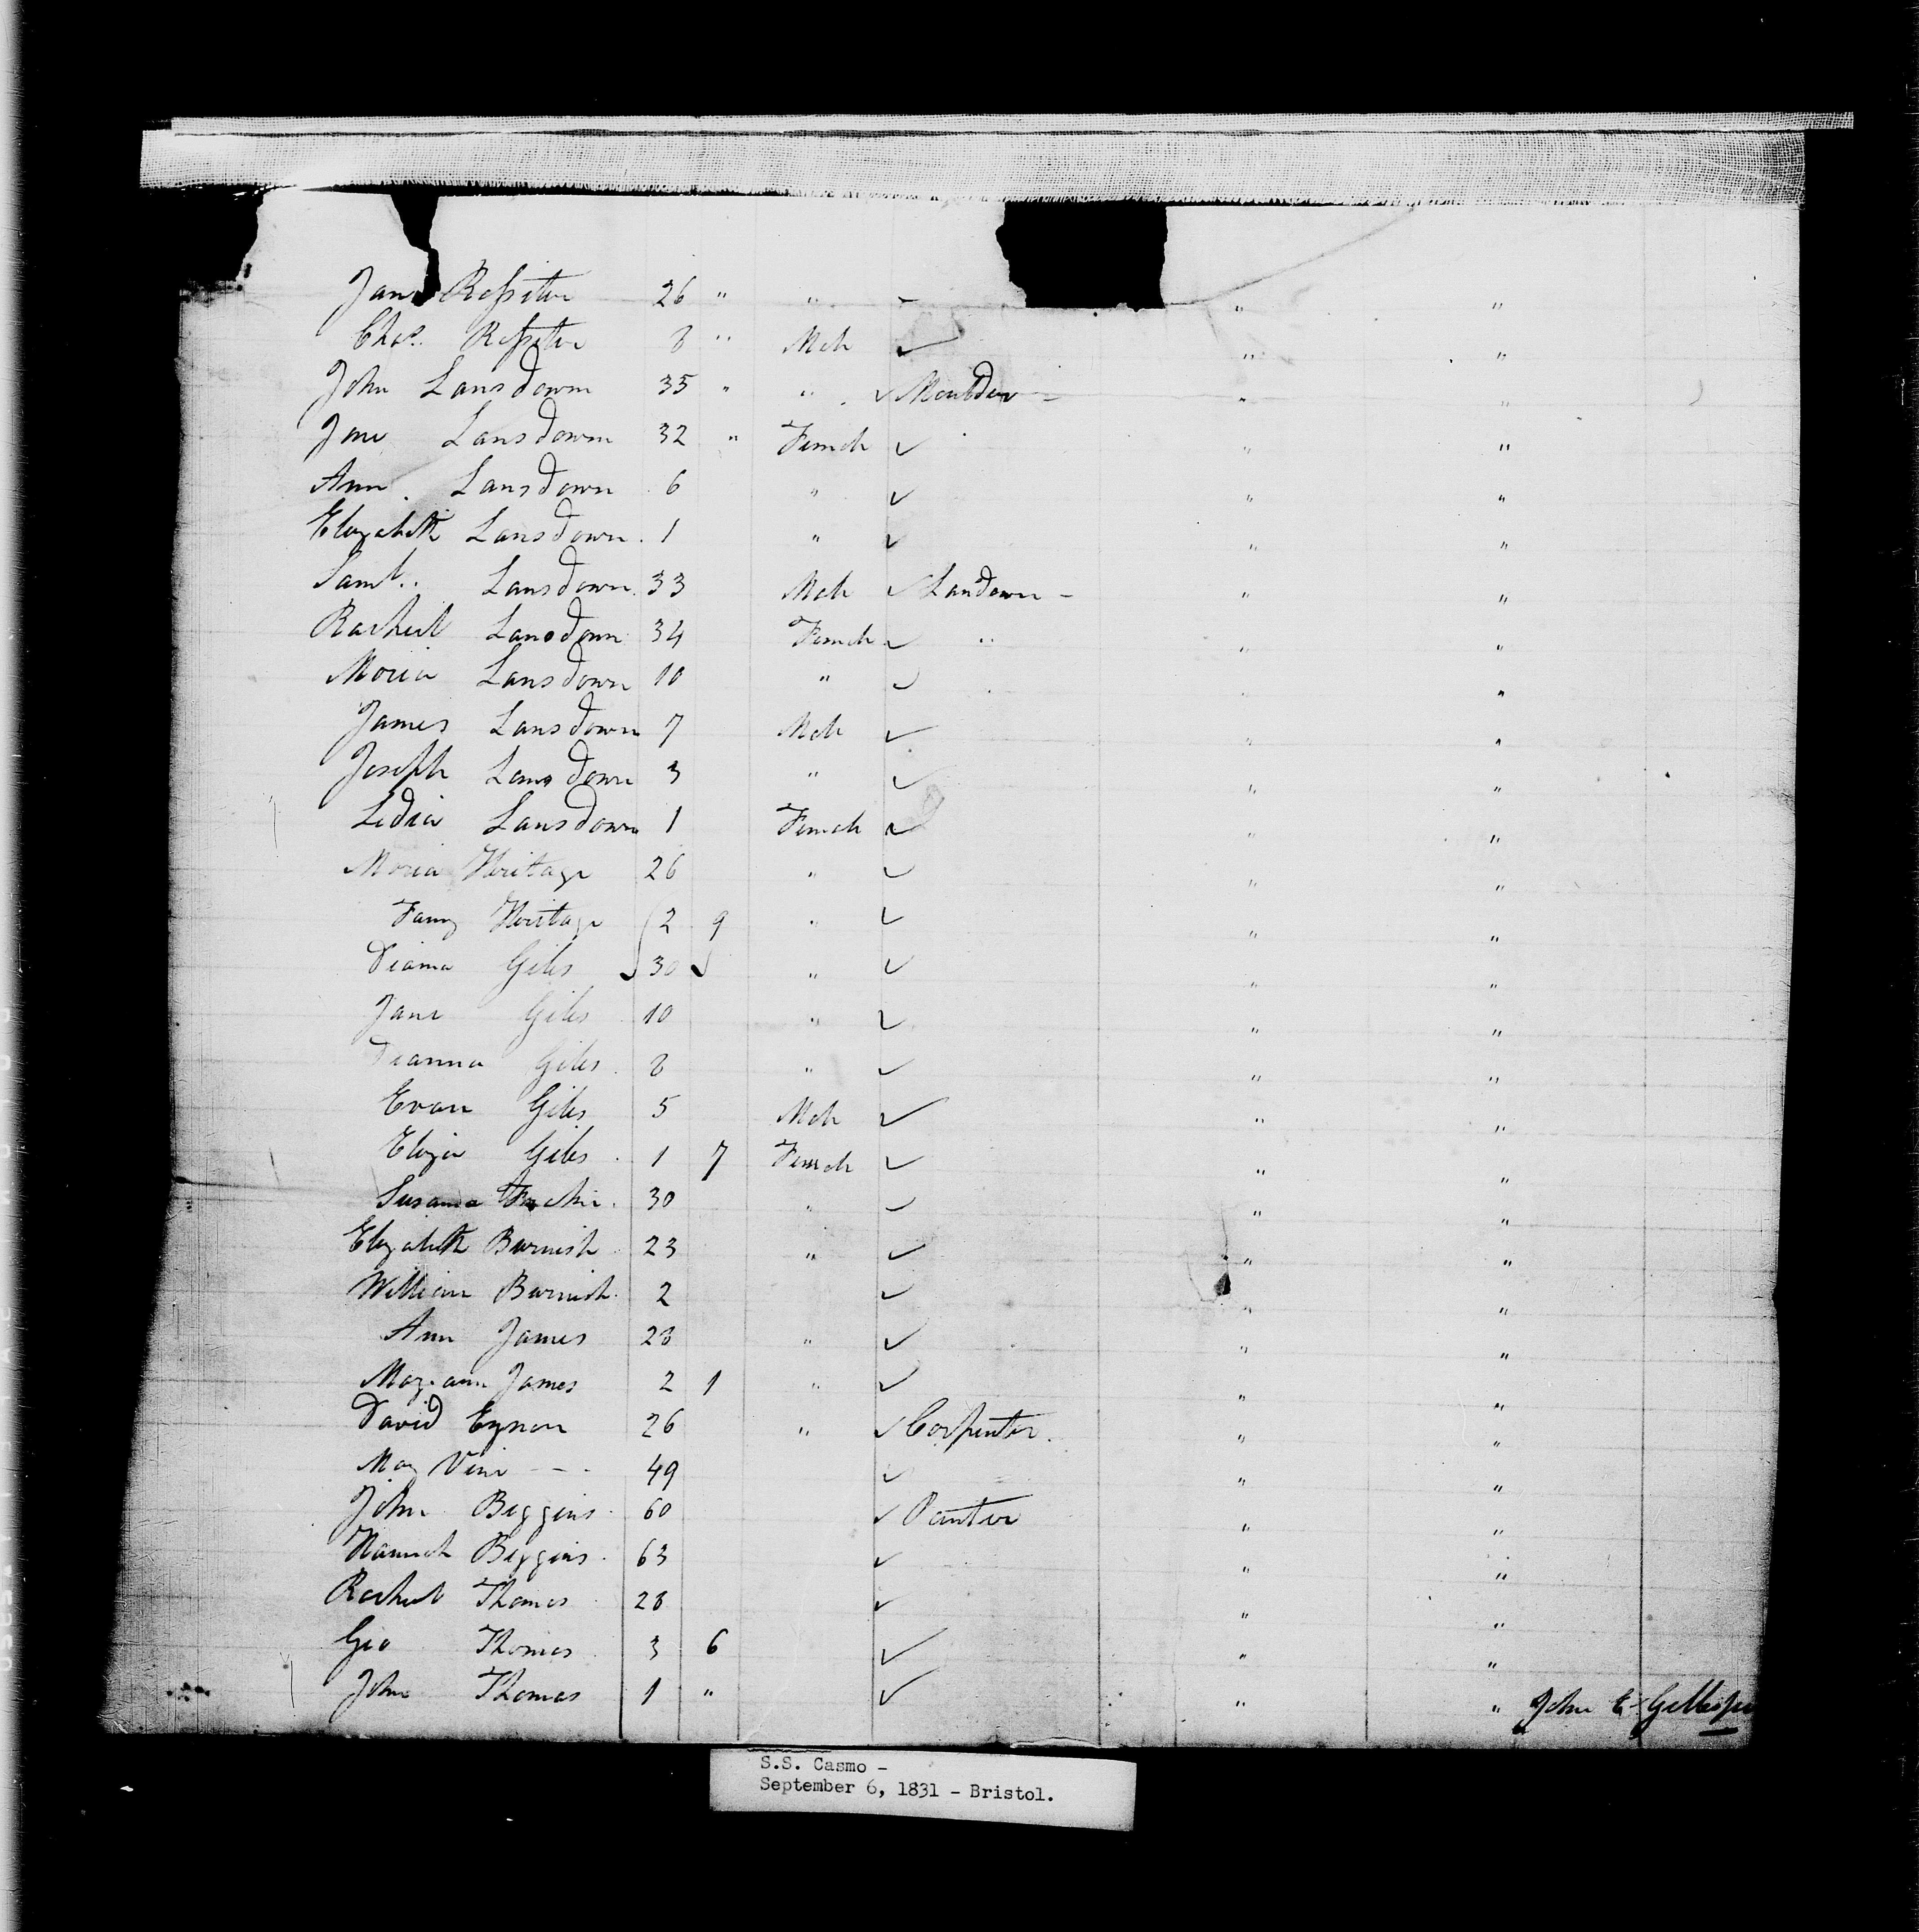 Jane Rossiter 26 " " - " "
Chas. Rossiter 8 " Male ✓ " "
John Lansdown 35 " " ✓ " "
Jane Lansdown 32 " Female ✓ " "
Ann Lansdown 6 " ✓ " "
Elizabeth Lansdown 1 " ✓ " "
Saml. Lansdown 33 Male ✓ Landown - " "
Rachel Lansdown 34 Female ✓ " " "
Moria Lansdown 10 " ✓ " "
James Lansdown 7 Male ✓ " "
Joseph Lansdown 3 " ✓ " "
Ledia Lansdown 1 Female ✓ " "
Moria Heritage 26 " ✓ " "
Fanny Heritage 2 9 " ✓ " "
Diana Giles 30 " ✓ " "
Jane Giles 10 " ✓ " "
Dianna Giles 8 " ✓ " "
Evan Giles 5 Male ✓ " "
Eliza Giles 1 7 Female ✓ " "
Susanna 30 " ✓ " "
Elizabeth Burnish 23 " ✓ " "
William Burnish 2 ✓ " "
Ann James 28 " ✓ " "
Mary ann James 2 1 " ✓ " "
David Eynon 26 " ✓ Carpenter. " "
Mary Vine - - - 49 ✓ " "
John Biggins 60 ✓ Painter " "
Hannah Biggins 63 ✓ " "
Rachel Thomas 28 ✓ " "
Geo Thomas 3 6 ✓ " "
John Thomas 1 " ✓ " " John Gillespie
S.S. Casmo -
September 6, 1831 - Bristol.